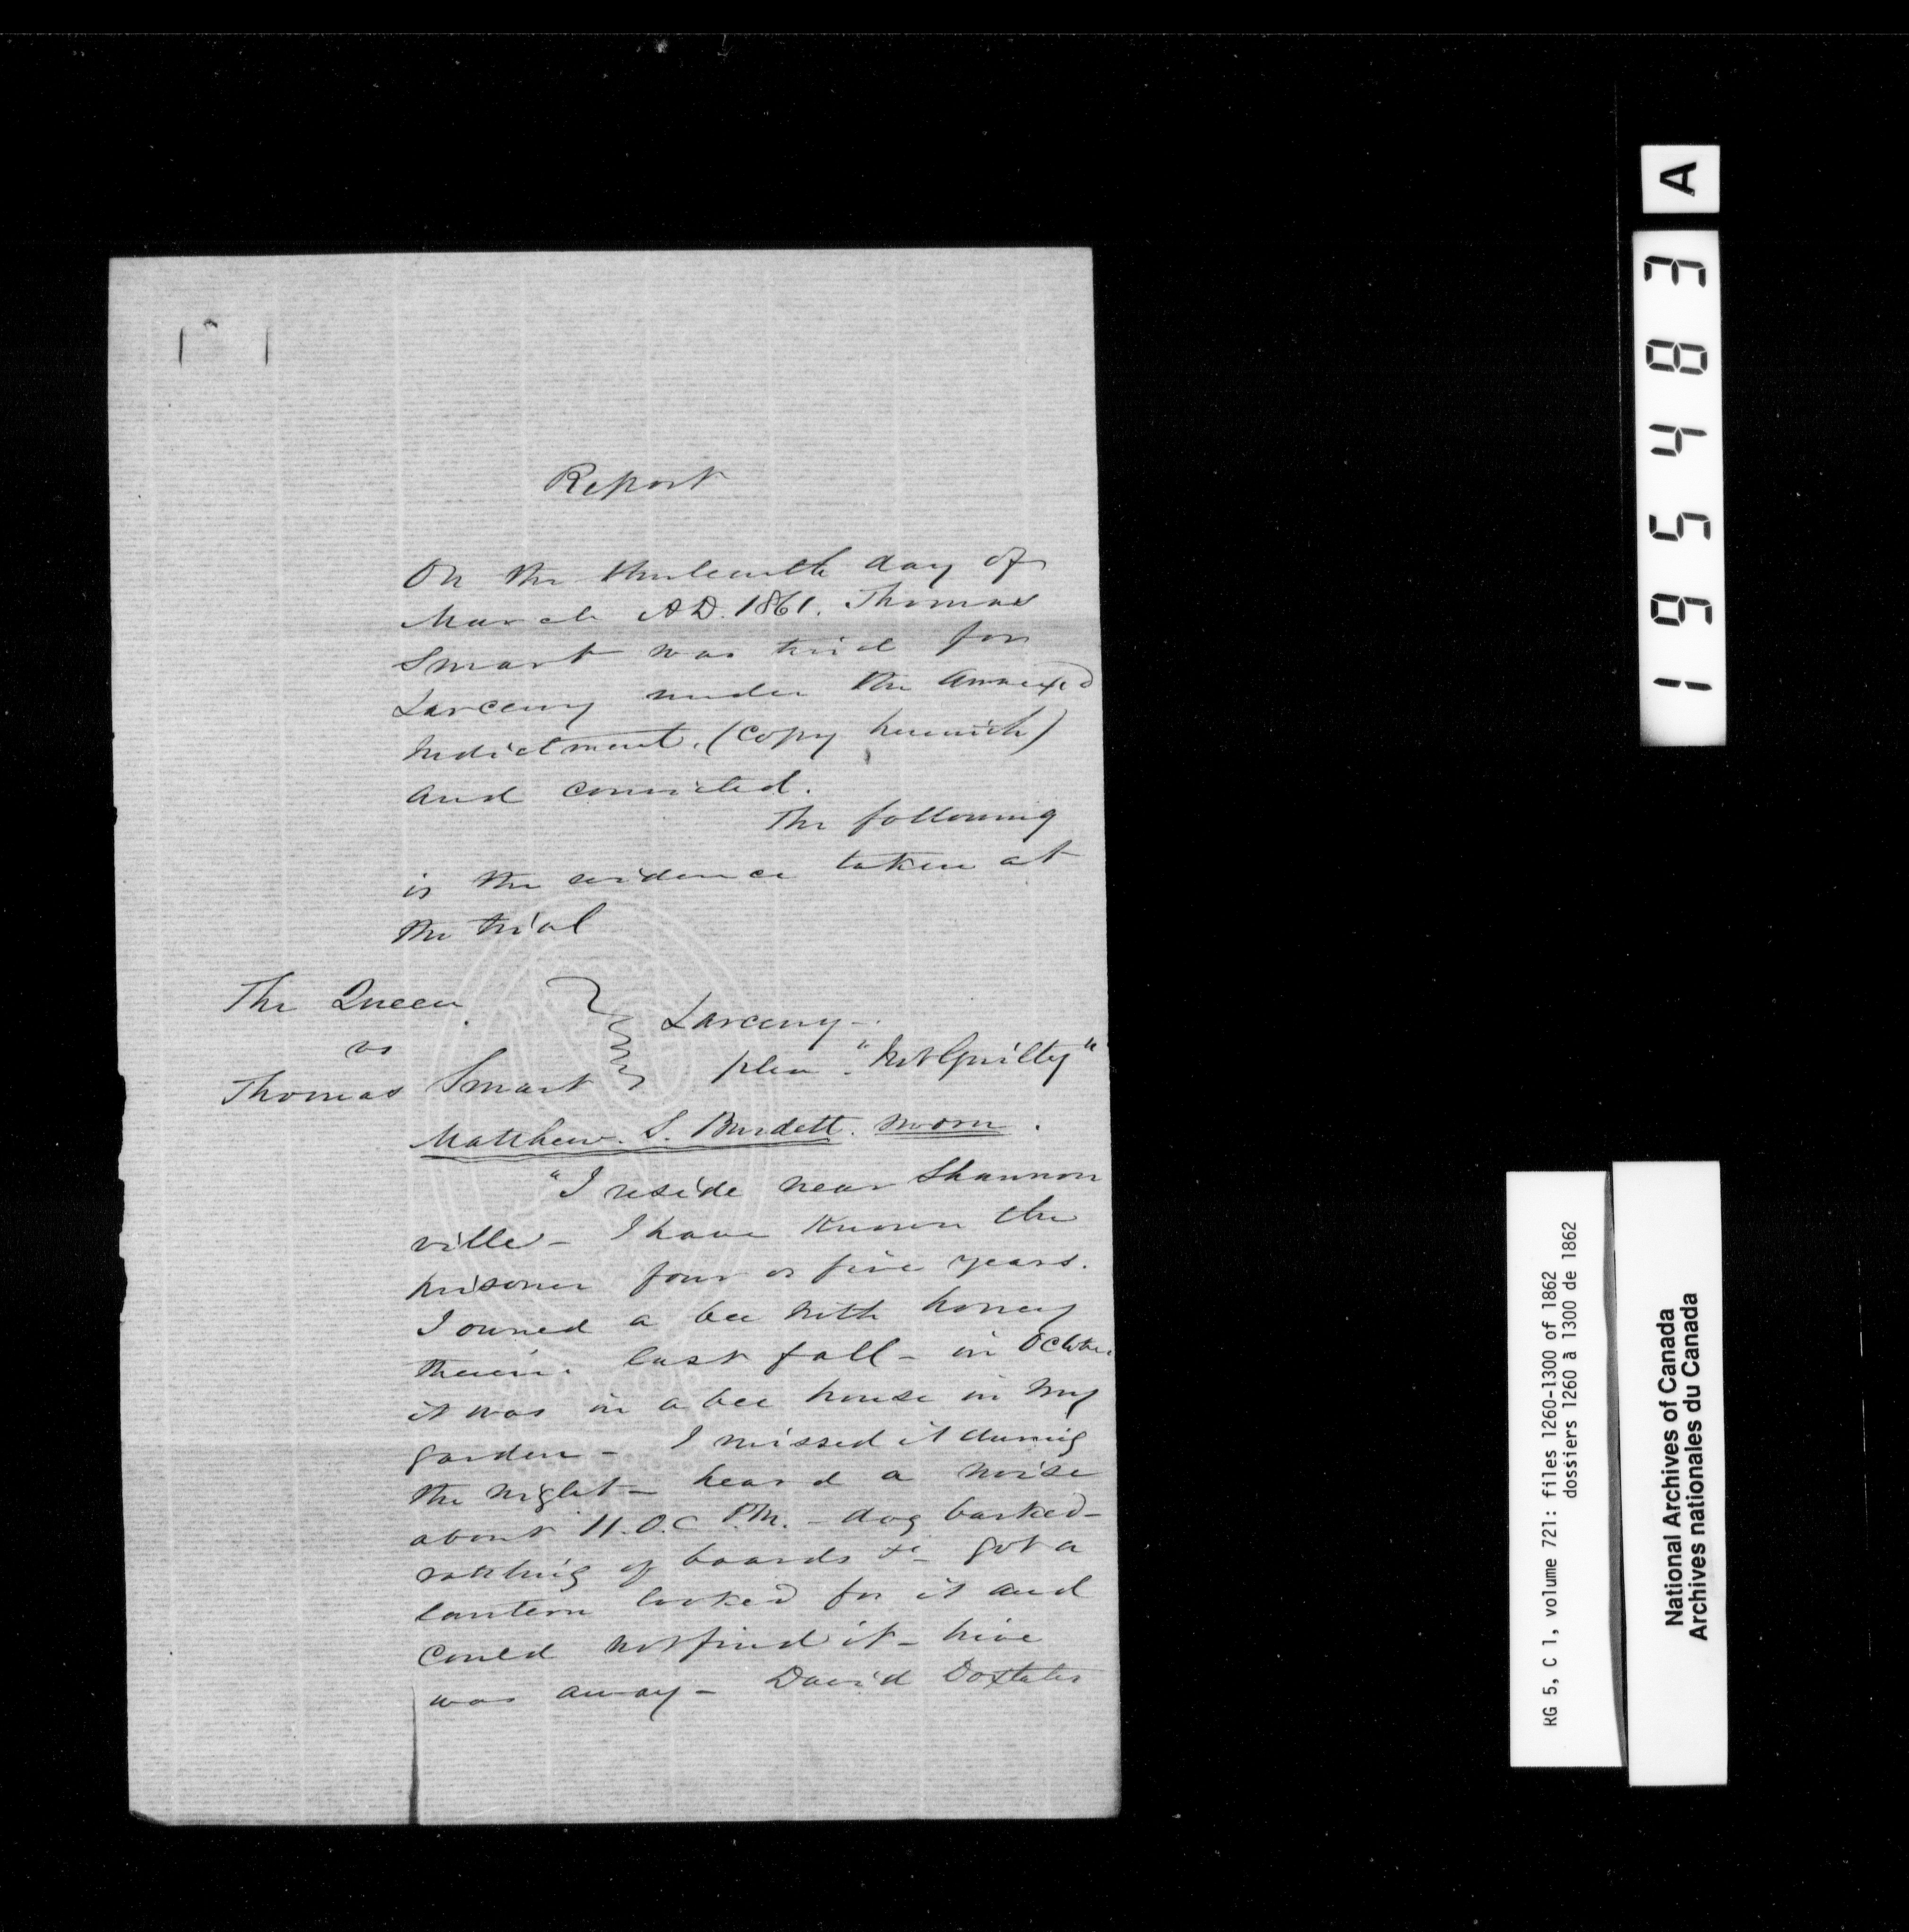 Report
On the thirteenth day of
March A.D. 1861. Thomas
Smart was tried for
Larceny under the annexed
Indictment. (Copy herewith)
and convicted.
The following
is the evidence taken at
the trial
The Queen
vs
Thomas Smart
Larceny -
plea - "Not Guilty"
Matthew. S. Burdett. sworn.
"I reside near Shannon
ville - I have known the
prisoner four or five years.
I owned a bee with honey
therein. last fall - in October
it was in a bee house in my
garden - I missed it during
the night - heard a noise
about 11. O.C P.M. - dog barked -
rattling of boards &c - got a
lantern looked for it and
could not find it - hive
was away - David Doxtater
A
195483
RG 5, C 1, volume 721: files 1260-1300 of 1862
dossiers 1260 à 1300 de 1862
National Archives of Canada
Archives nationales du Canada